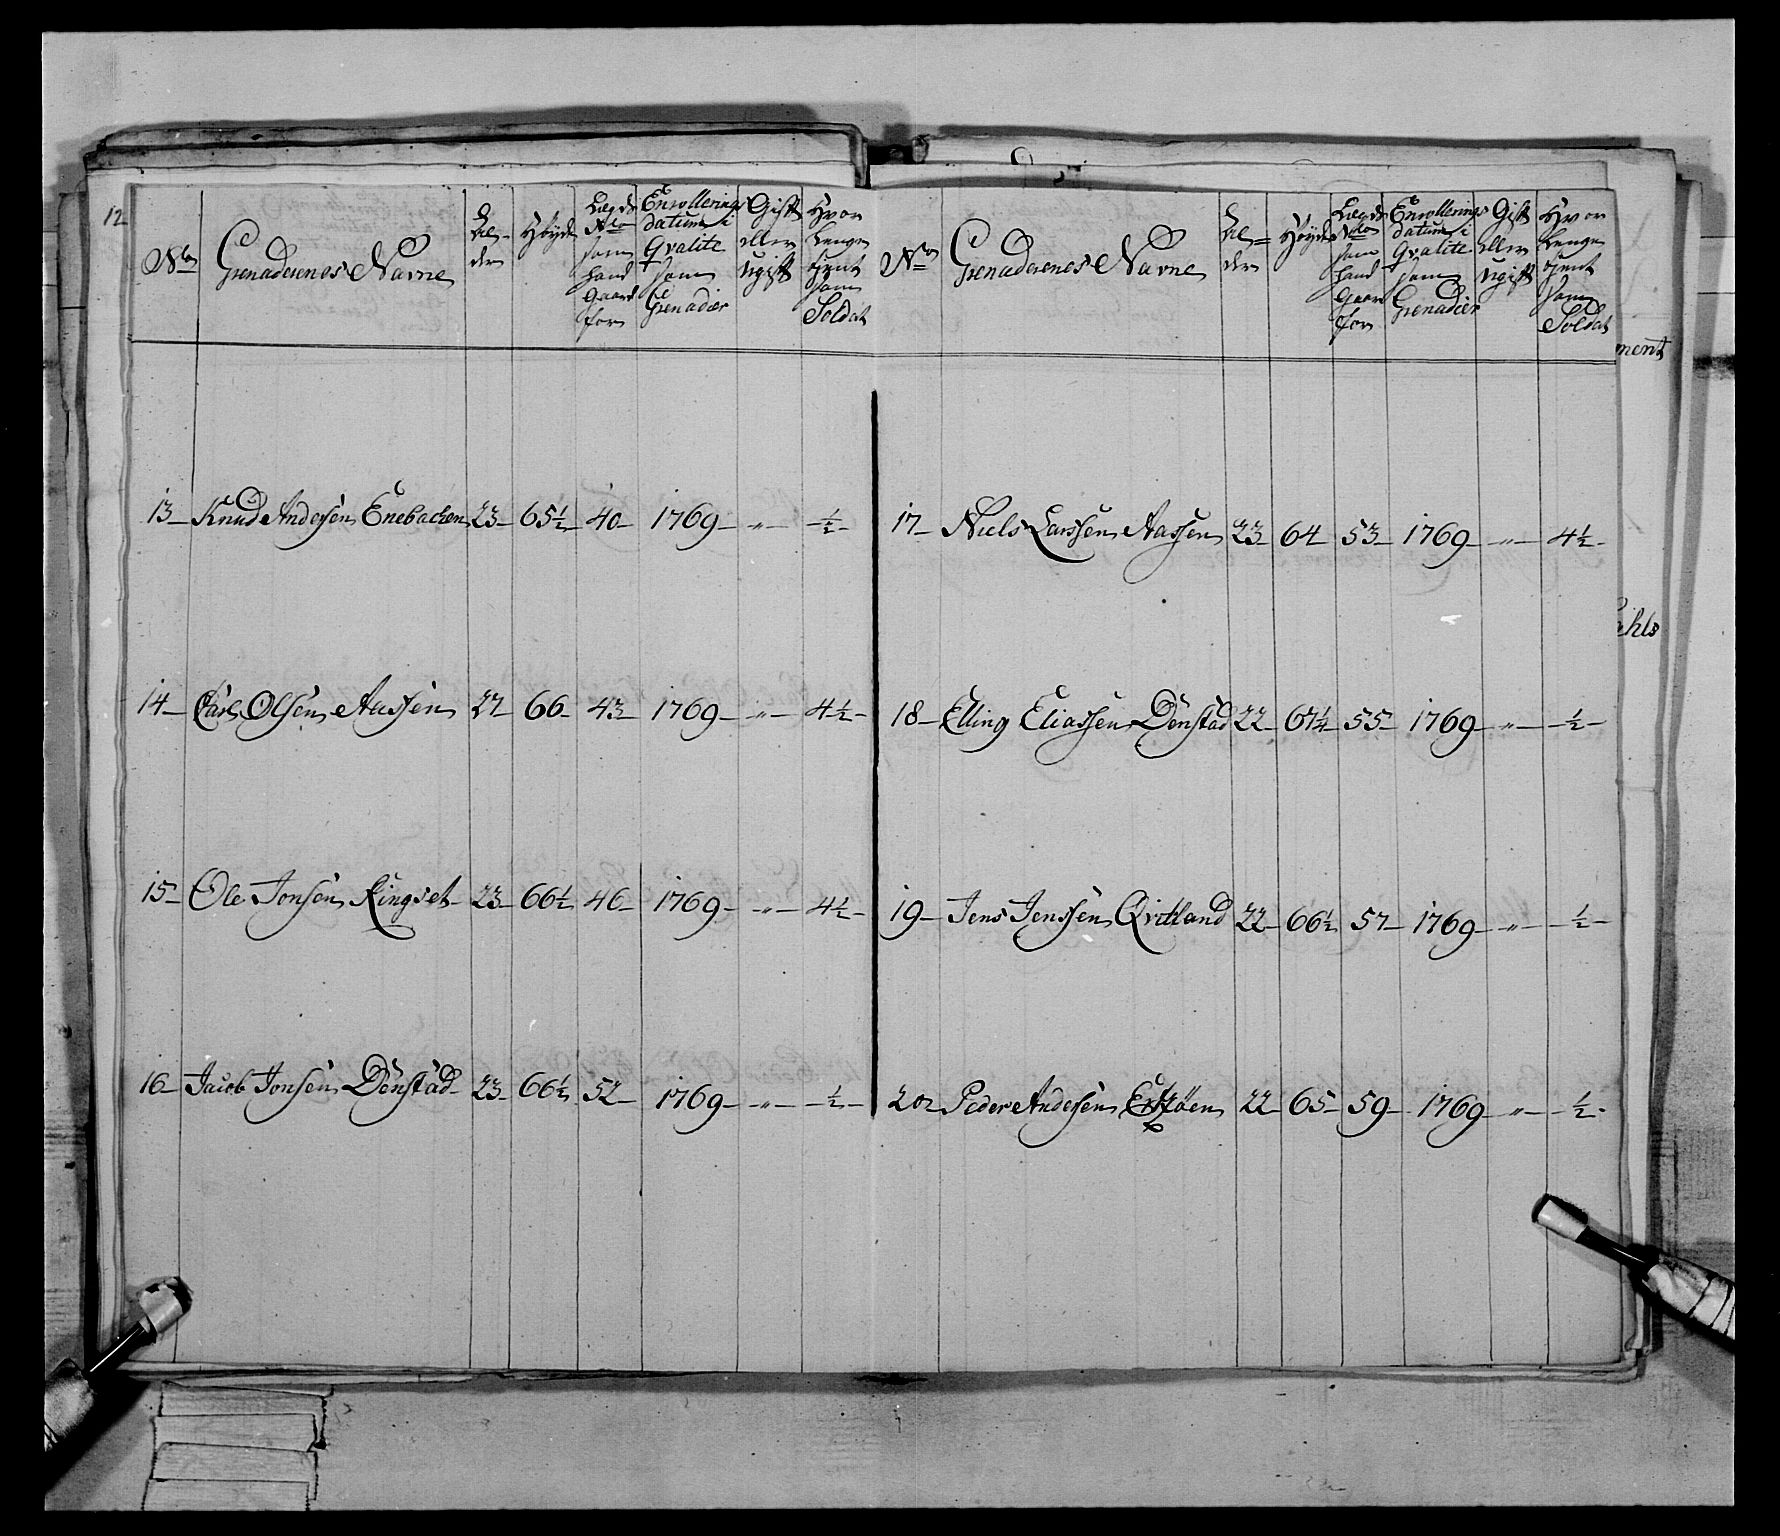 12
No Grenaderenes Navne Al- der Höyde Lægds No som hand Gaard for Enrollerings datum i Qvalite som Grenadier Gift eller Ugift Hvor lenge tjent som Soldat
13 Knud Andersen Enebachen 23 65½ 40 1769 " ½
14 Carl Olsen Aassen 27 66 43 1769 " 4½
15 Ole Jonsen Ringset 23 66½ 46 1769 " 4½
16 Jacob Jonsen Dönstad 23 66½ 52 1769 " ½
No Grenaderenes Navne Al= der Höyde Lægds No som hand Gaar for Enrollerings datum i Qvalite som Grenadier Gift eller Ugift Hvor lenge tjent som Soldat
17 Niels Larssen Aassen 23 64 53 1769 " 4½
18 Elling Eliassen Dönstad 22 67¼ 55 1769 " ½
19 Jens Jenssen Qvitland 22 66½ 57 1769 " ½
20 Peder Andersen 22 65 59 1769 " ½
ment
ahls